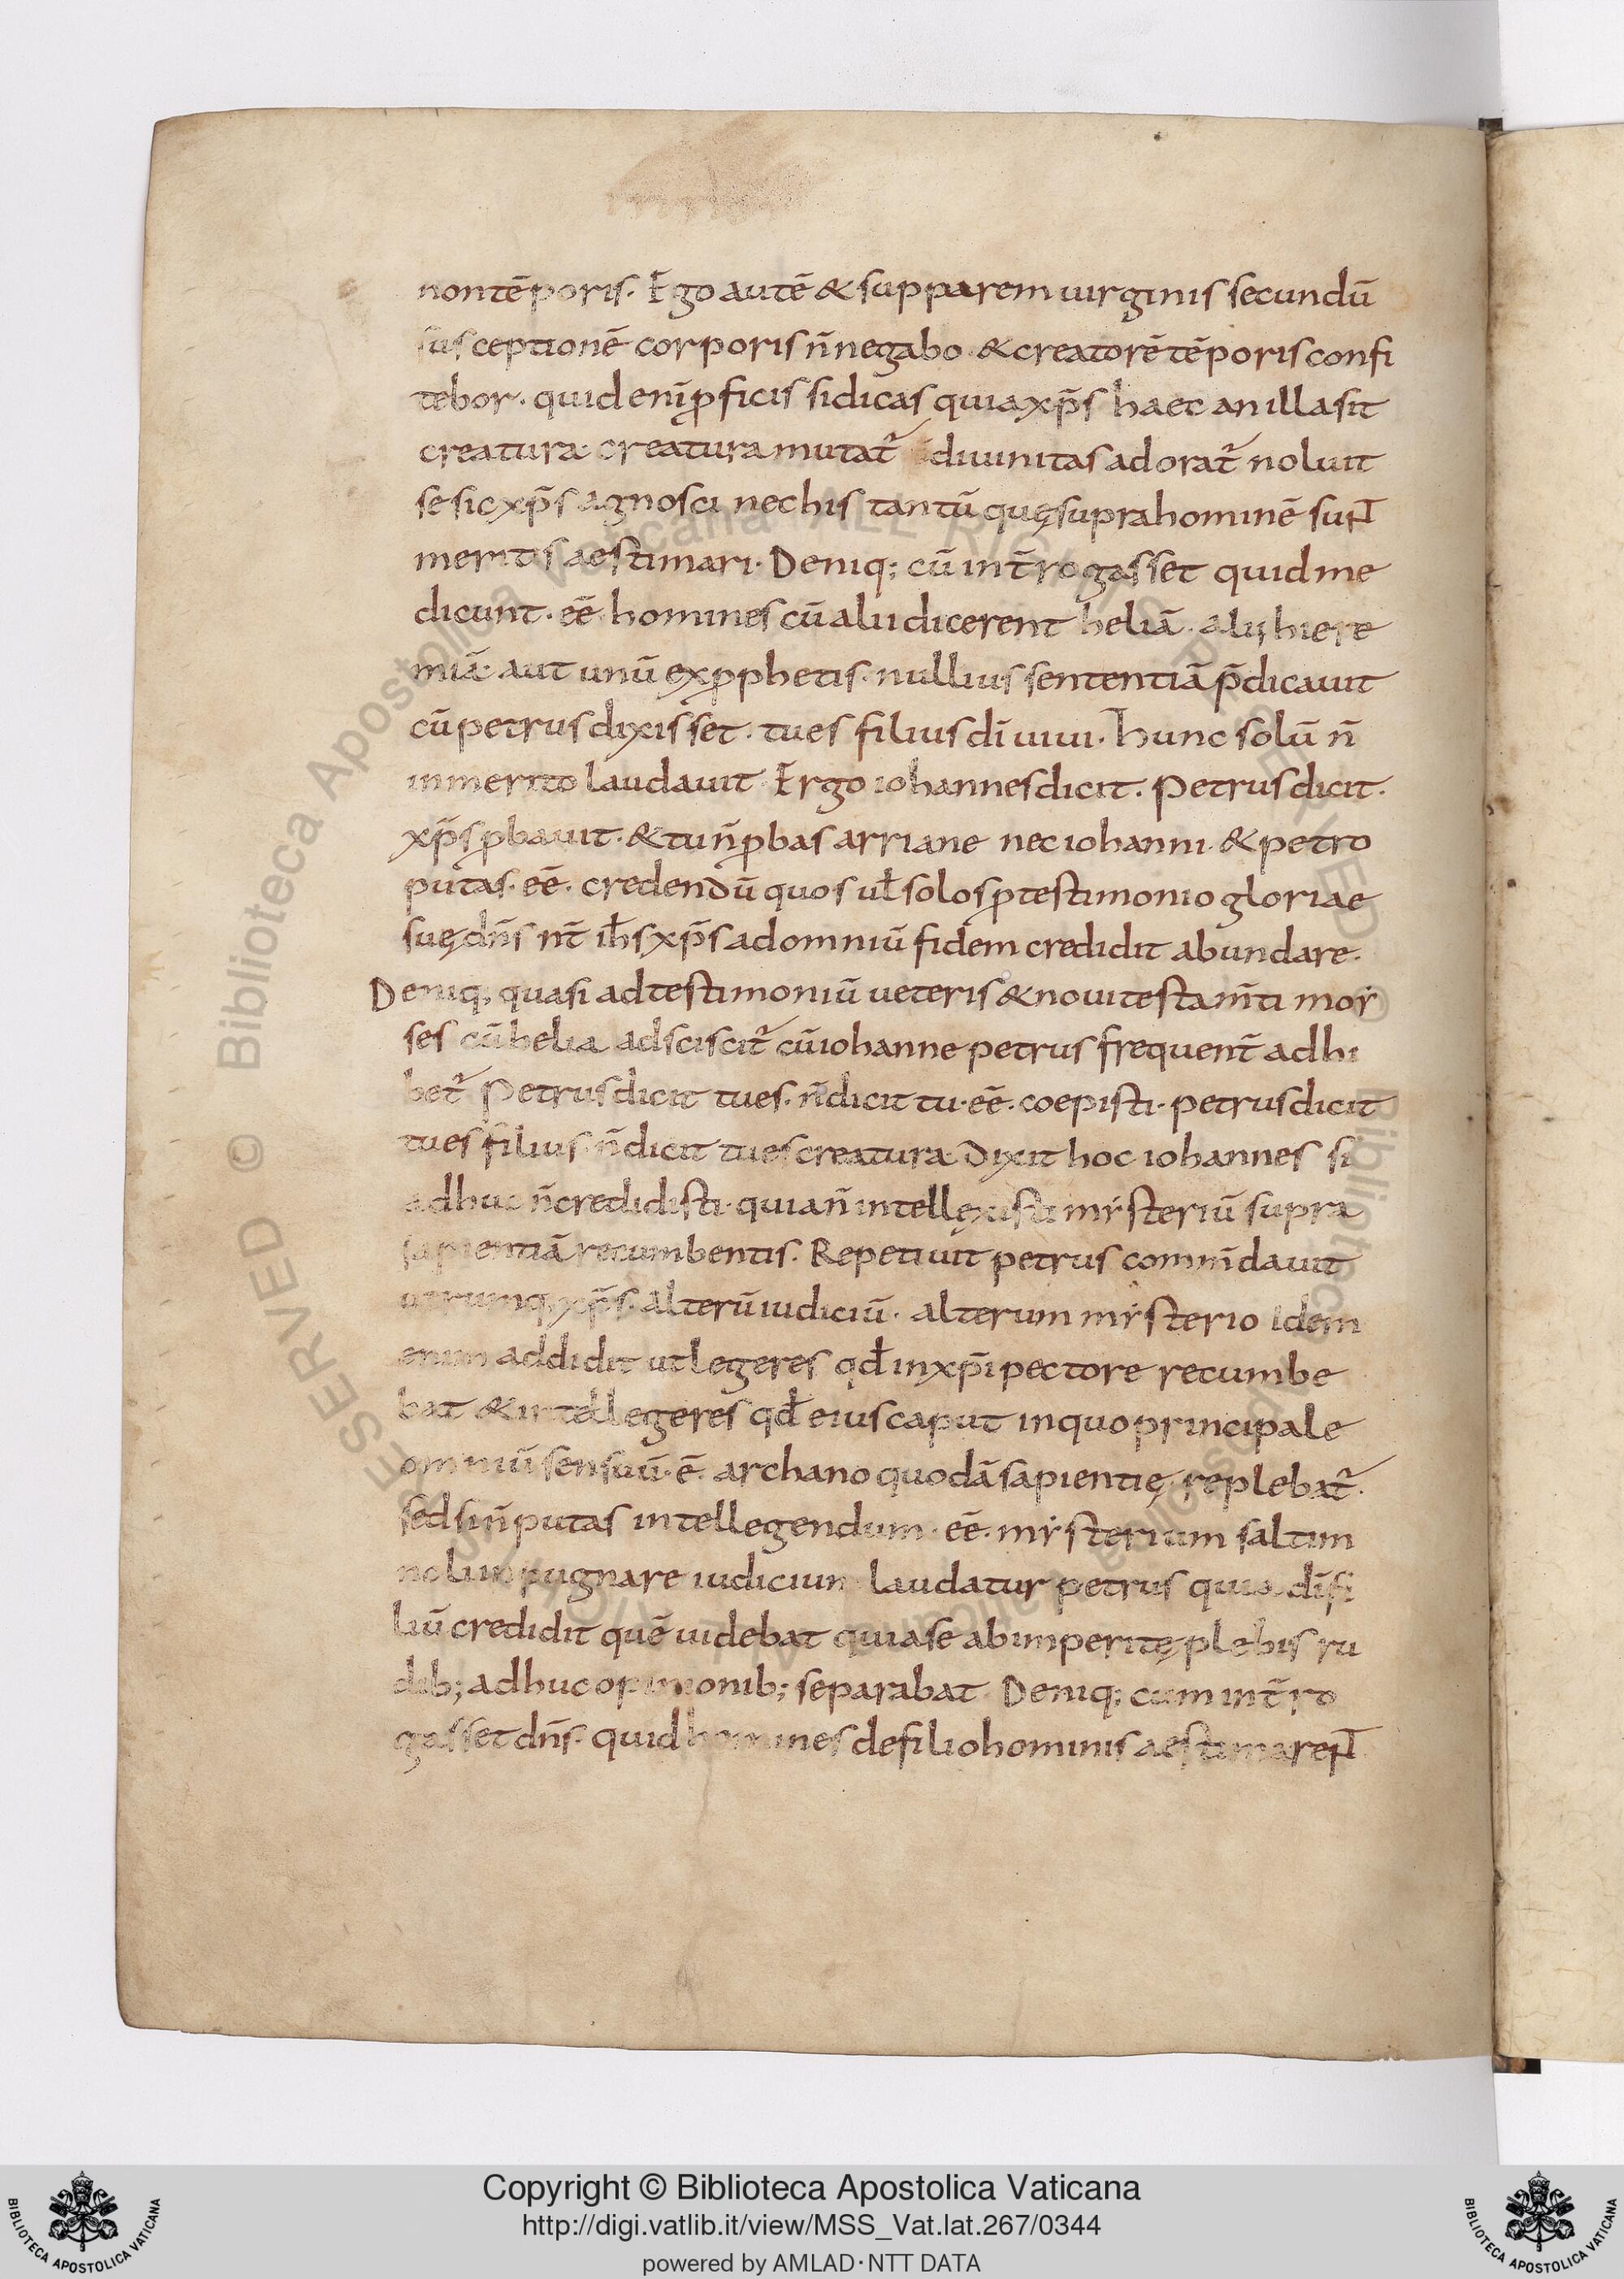 non tēporis. Ergo autē & supparem uirginis secundū
susceptionē corporis n̄ negabo. & creatorē tēporis confi
tebor. quid enī ꝓficis si dicas quia xp̄s haec an illa sit
creatura. creatura mutat᷑ diuinitas adorat᷑ noluit
se sic xp̄s agnosci nec his tantū quę supra hominē sunt
meritis aestimari. Deniq; cū int̄rogasset quid me
dicunt. eē. homines cū alii dicerent heliā. alii hiere
miā. aut unū ex ꝓphetis. nullius sententiā p̄dicauit
cū petrus dixisset. tu es filius dī uiui. hunc solū n̄
inmerito laudauit. Ergo iohannes dicit. Petrus dicit.
xp̄s ꝓbauit. & tu n̄ ꝓbas arriane nec iohanni. & petro
putas. eē. credendū quos uƚ solos ꝓ testimonio gloriae
suę dn̄s nt̄ ih̄s xp̄s ad omniū fidem credidit abundare.
Deniq; quasi ad testimoniū ueteris & noui testam̄ti moẏ
ses cū helia adsciscit᷑ cū iohanne petrus frequent̄ adhi
bet᷑ Petrus dicit tu es. n̄ dicit tu. eē. coepisti. petrus dicit
tu es filius. n̄ dicit tu es creatura. Dixit hoc iohannes si
adhuc n̄ credidisti. quia n̄ intellexisti mẏsteriū supra
sapientiā recumbentis. Repetiuit petrus comm̄dauit
utrumq; xp̄s. alterū iudiciū. alterum mẏsterio Idem
enim addidit ut legeres qđ in xp̄i pectore recumbe
bat & intellegeres qđ eius caput in quo principale
omniū sensuū. ē. archano quodā sapientię replebat᷑.
sed si n̄ putas intellegendum. eē. mẏsterium saltim
noli inpugnare iudicium laudatur petrus quia dī fi
liū credidit quē uidebat quia se ab imperitę plebis ru
dib; adhuc opinionib; separabat. Deniq; cum int̄ro
gasset dn̄s. quid homines de filio hominis aestimarent
Copyright © Biblioteca Apostolica Vaticana
http://digi.vatlib.it/view/MSS_Vat.lat.267/0344
powered by AMLAD·NTT DATA
BIBLIOTECA APOSTOLICA VATICANA
BIBLIOTECA APOSTOLICA VATICANA